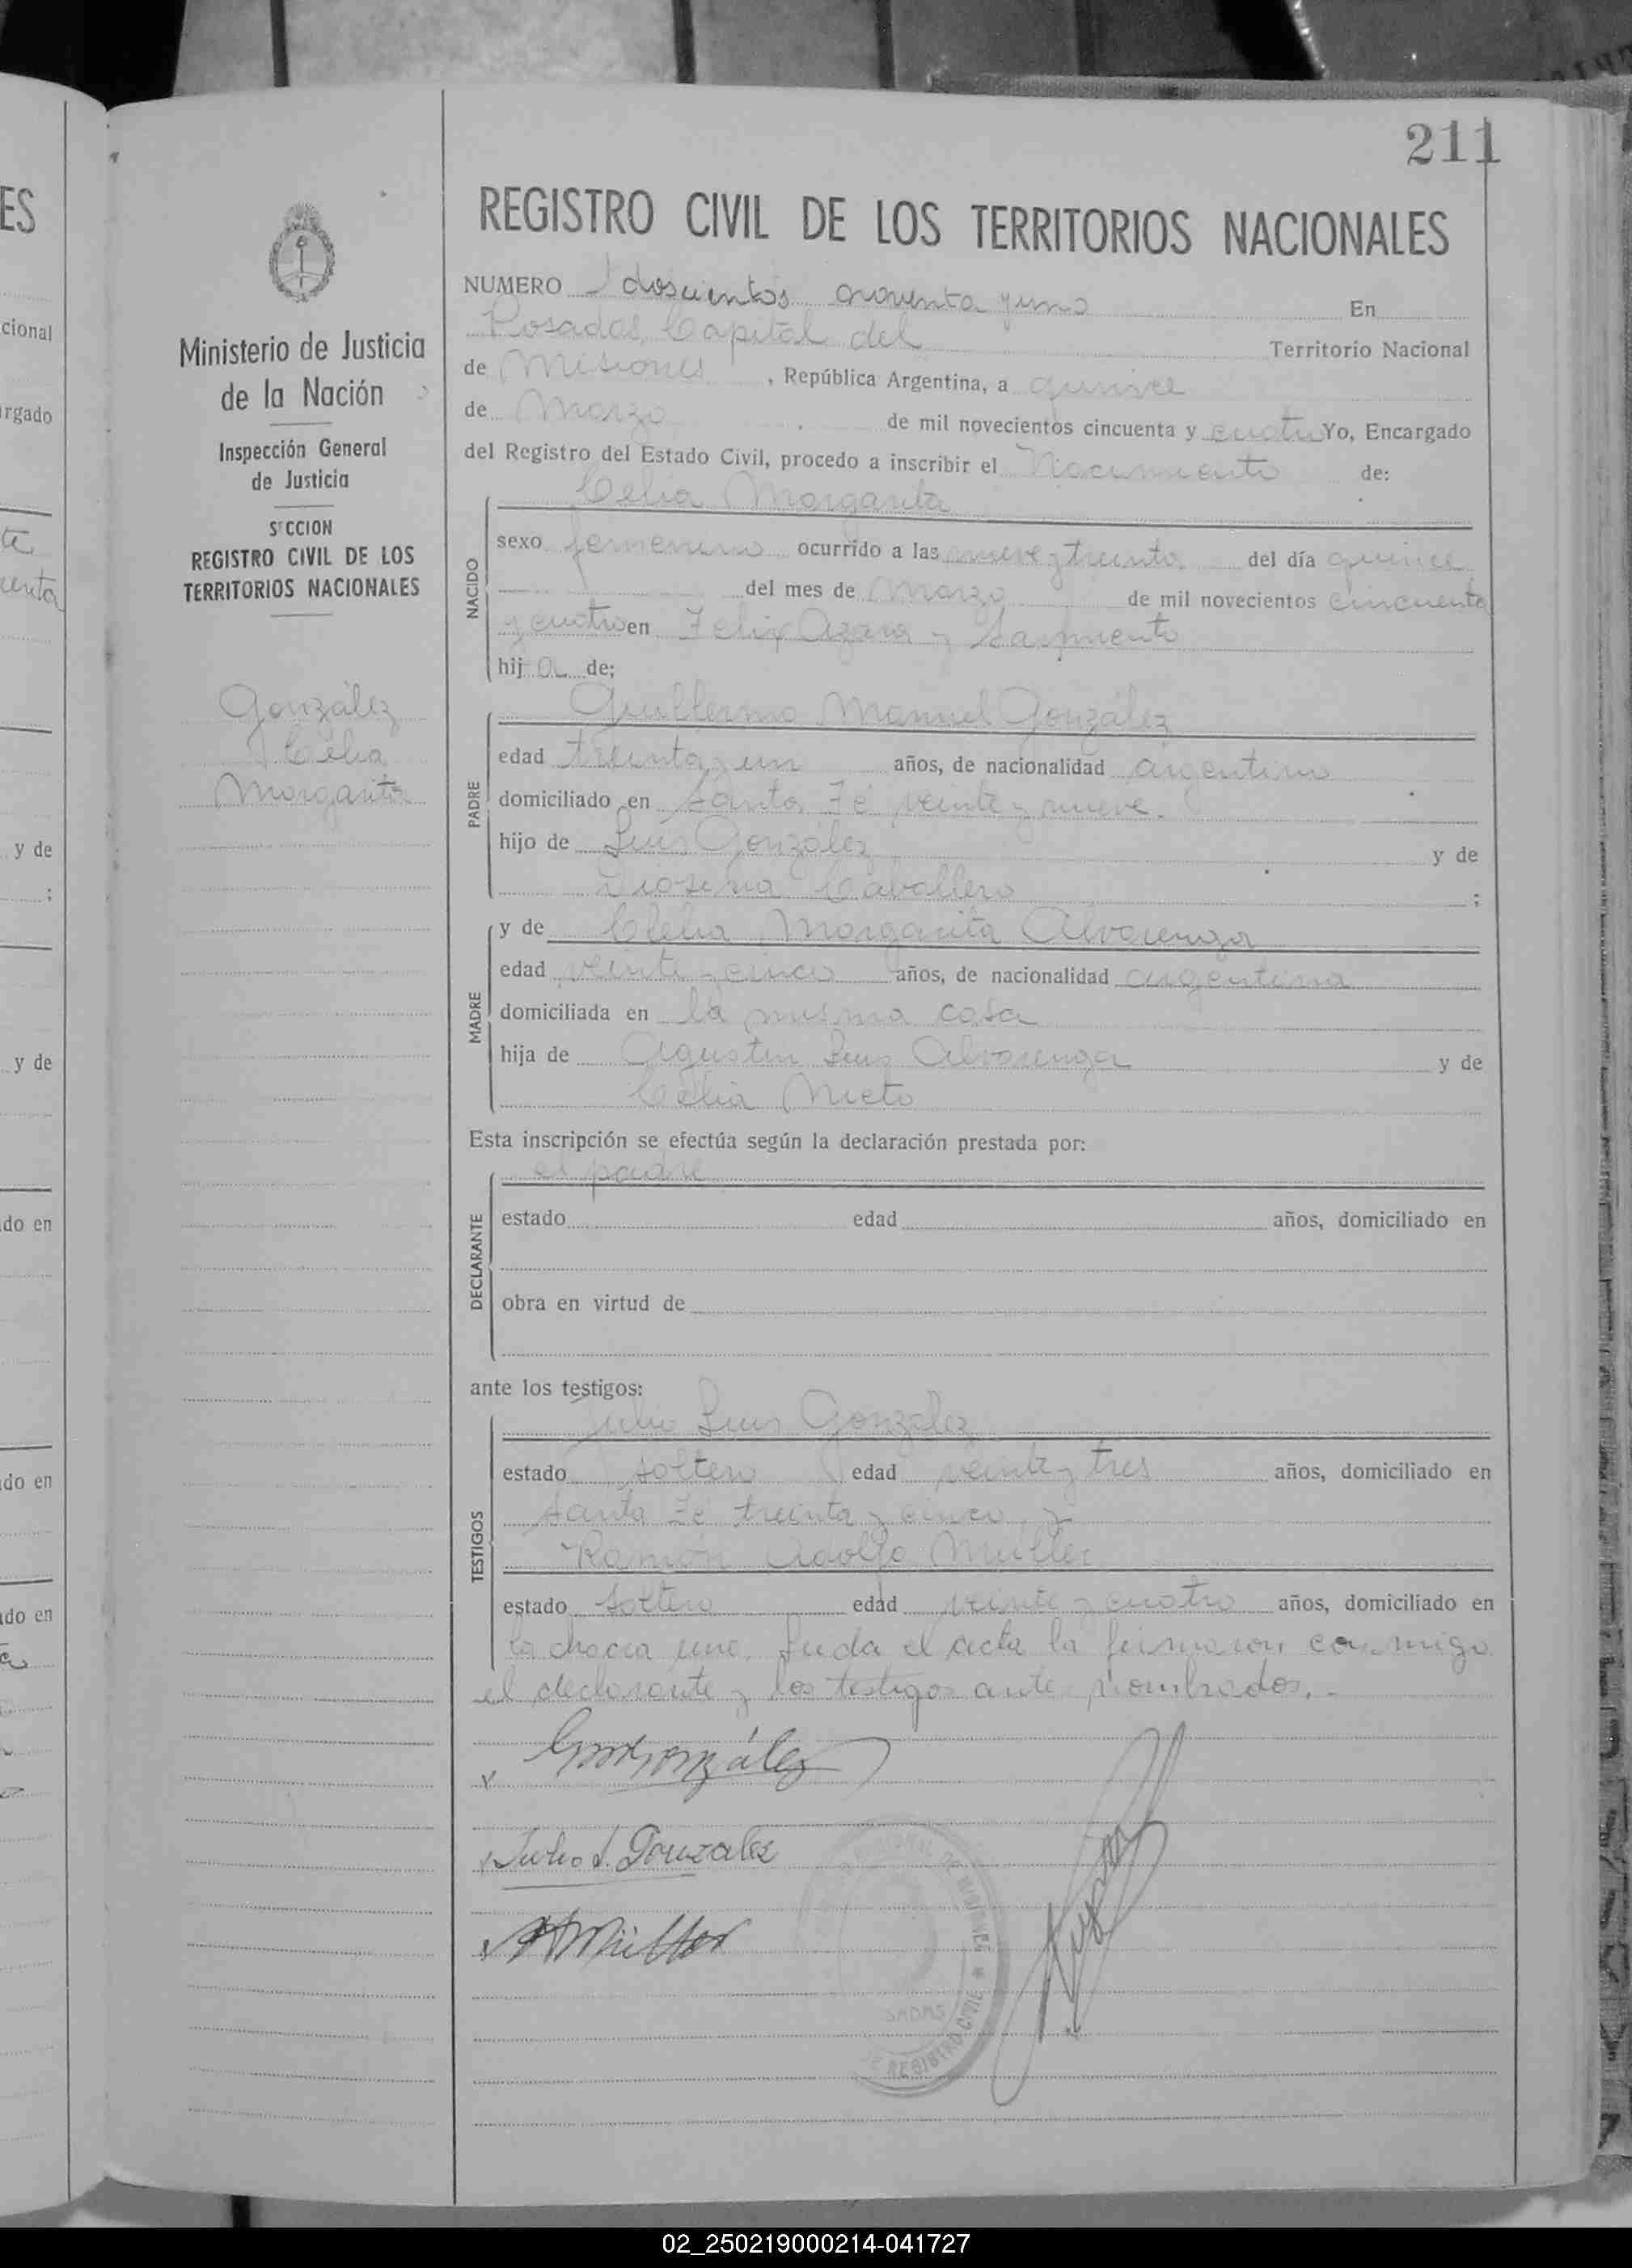 211
REGISTRO CIVIL DE LOS TERRITORIOS NACIONALES
Ministerio de Justicia
de la Nación
Inspección General
de Justicia
SECCION
REGISTRO CIVIL DE LOS
TERRITORIOS NACIONALES
González
Celia
Margarita
NUMERO doscientos noventa y uno En
Posadas, Capital del Territorio Nacional
de Misiones, República Argentina, a quince
de Marzo de mil novecientos cincuenta y cuatro Yo, Encargado
del Registro del Estado Civil, procedo a inscribir el Nacimiento de:
NACIDO
Celia Margarita
sexo femenino ocurrido a las nueve y treinta del día quince
del mes de Marzo de mil novecientos cincuenta
y cuatro en Felix Azara y Sarmiento
hija de;
PADRE
Guillermo Manuel González
edad treinta y un años, de nacionalidad argentino
domiciliado en Santa Fé veinte y nueve.
hijo de Luis González y de
Caballero ;
MADRE
y de Clelia Margarita Alvarenga
edad veinte y cinco años, de nacionalidad argentina
domiciliada en la misma casa
hija de Agustin Luis Alvarenga y de
Celia Nieto
Esta inscripción se efectúa según la declaración prestada por:
DECLARANTE
el padre
estado edad años, domiciliado en
obra en virtud de
ante los testigos:
TESTIGOS
Julio Luis González
estado soltero edad veinte y tres años, domiciliado en
Santa Fé treinta y cinco y
Ramón Adolfo Muller
estado soltero edad veinte y cuatro años, domiciliado en
la chacra uno. Leida el acta la firmaron conmigo
el declarante y los testigos ante nombrados.-
González
Julio L. González
Müller
DE MISIONES
REGISTRO CIVIL
SADAS
ES
cional
rgado
te
uenta
y de
;
y de
do en
do en
do en
02_250219000214-041727